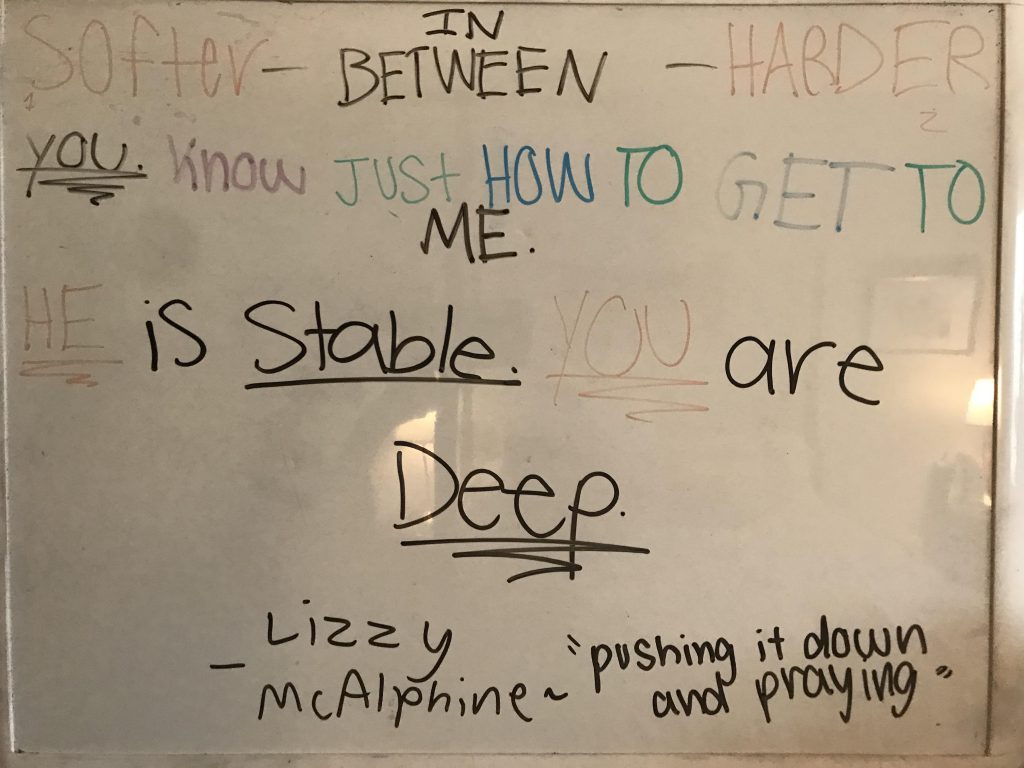 IN
Softer - BETWEEN - HARDER
1 2
YOU. Know JUSt HOW TO GET TO
ME.
HE is Stable. YOU are
Deep.
- Lizzy
McAlphine ~ "pushing it down
and praying"